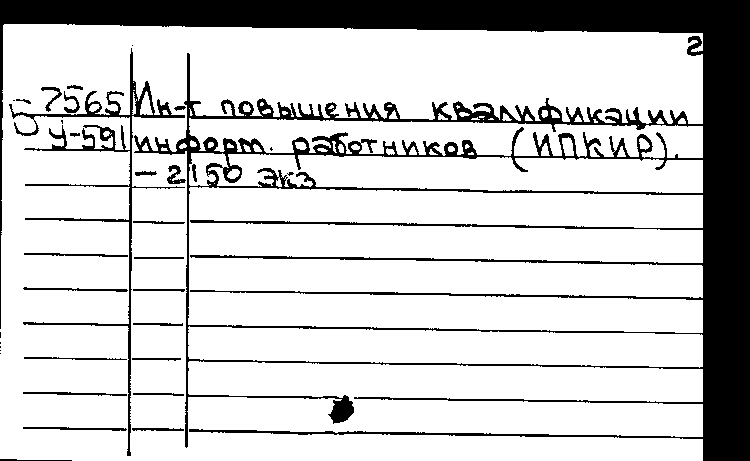 2
Б 7565 Ин-т повышения квалификации
У-591 информ. работников (ИПКИР).
– 2150 экз